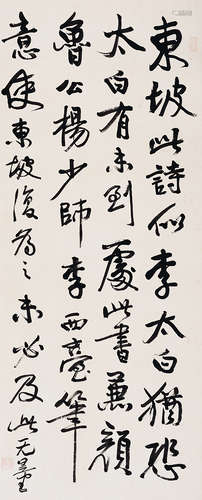 東坡此詩似李太白猶恐
太白有未到處此書兼顏
魯公楊少師李西臺筆
意使東坡復為之未必及此 无量